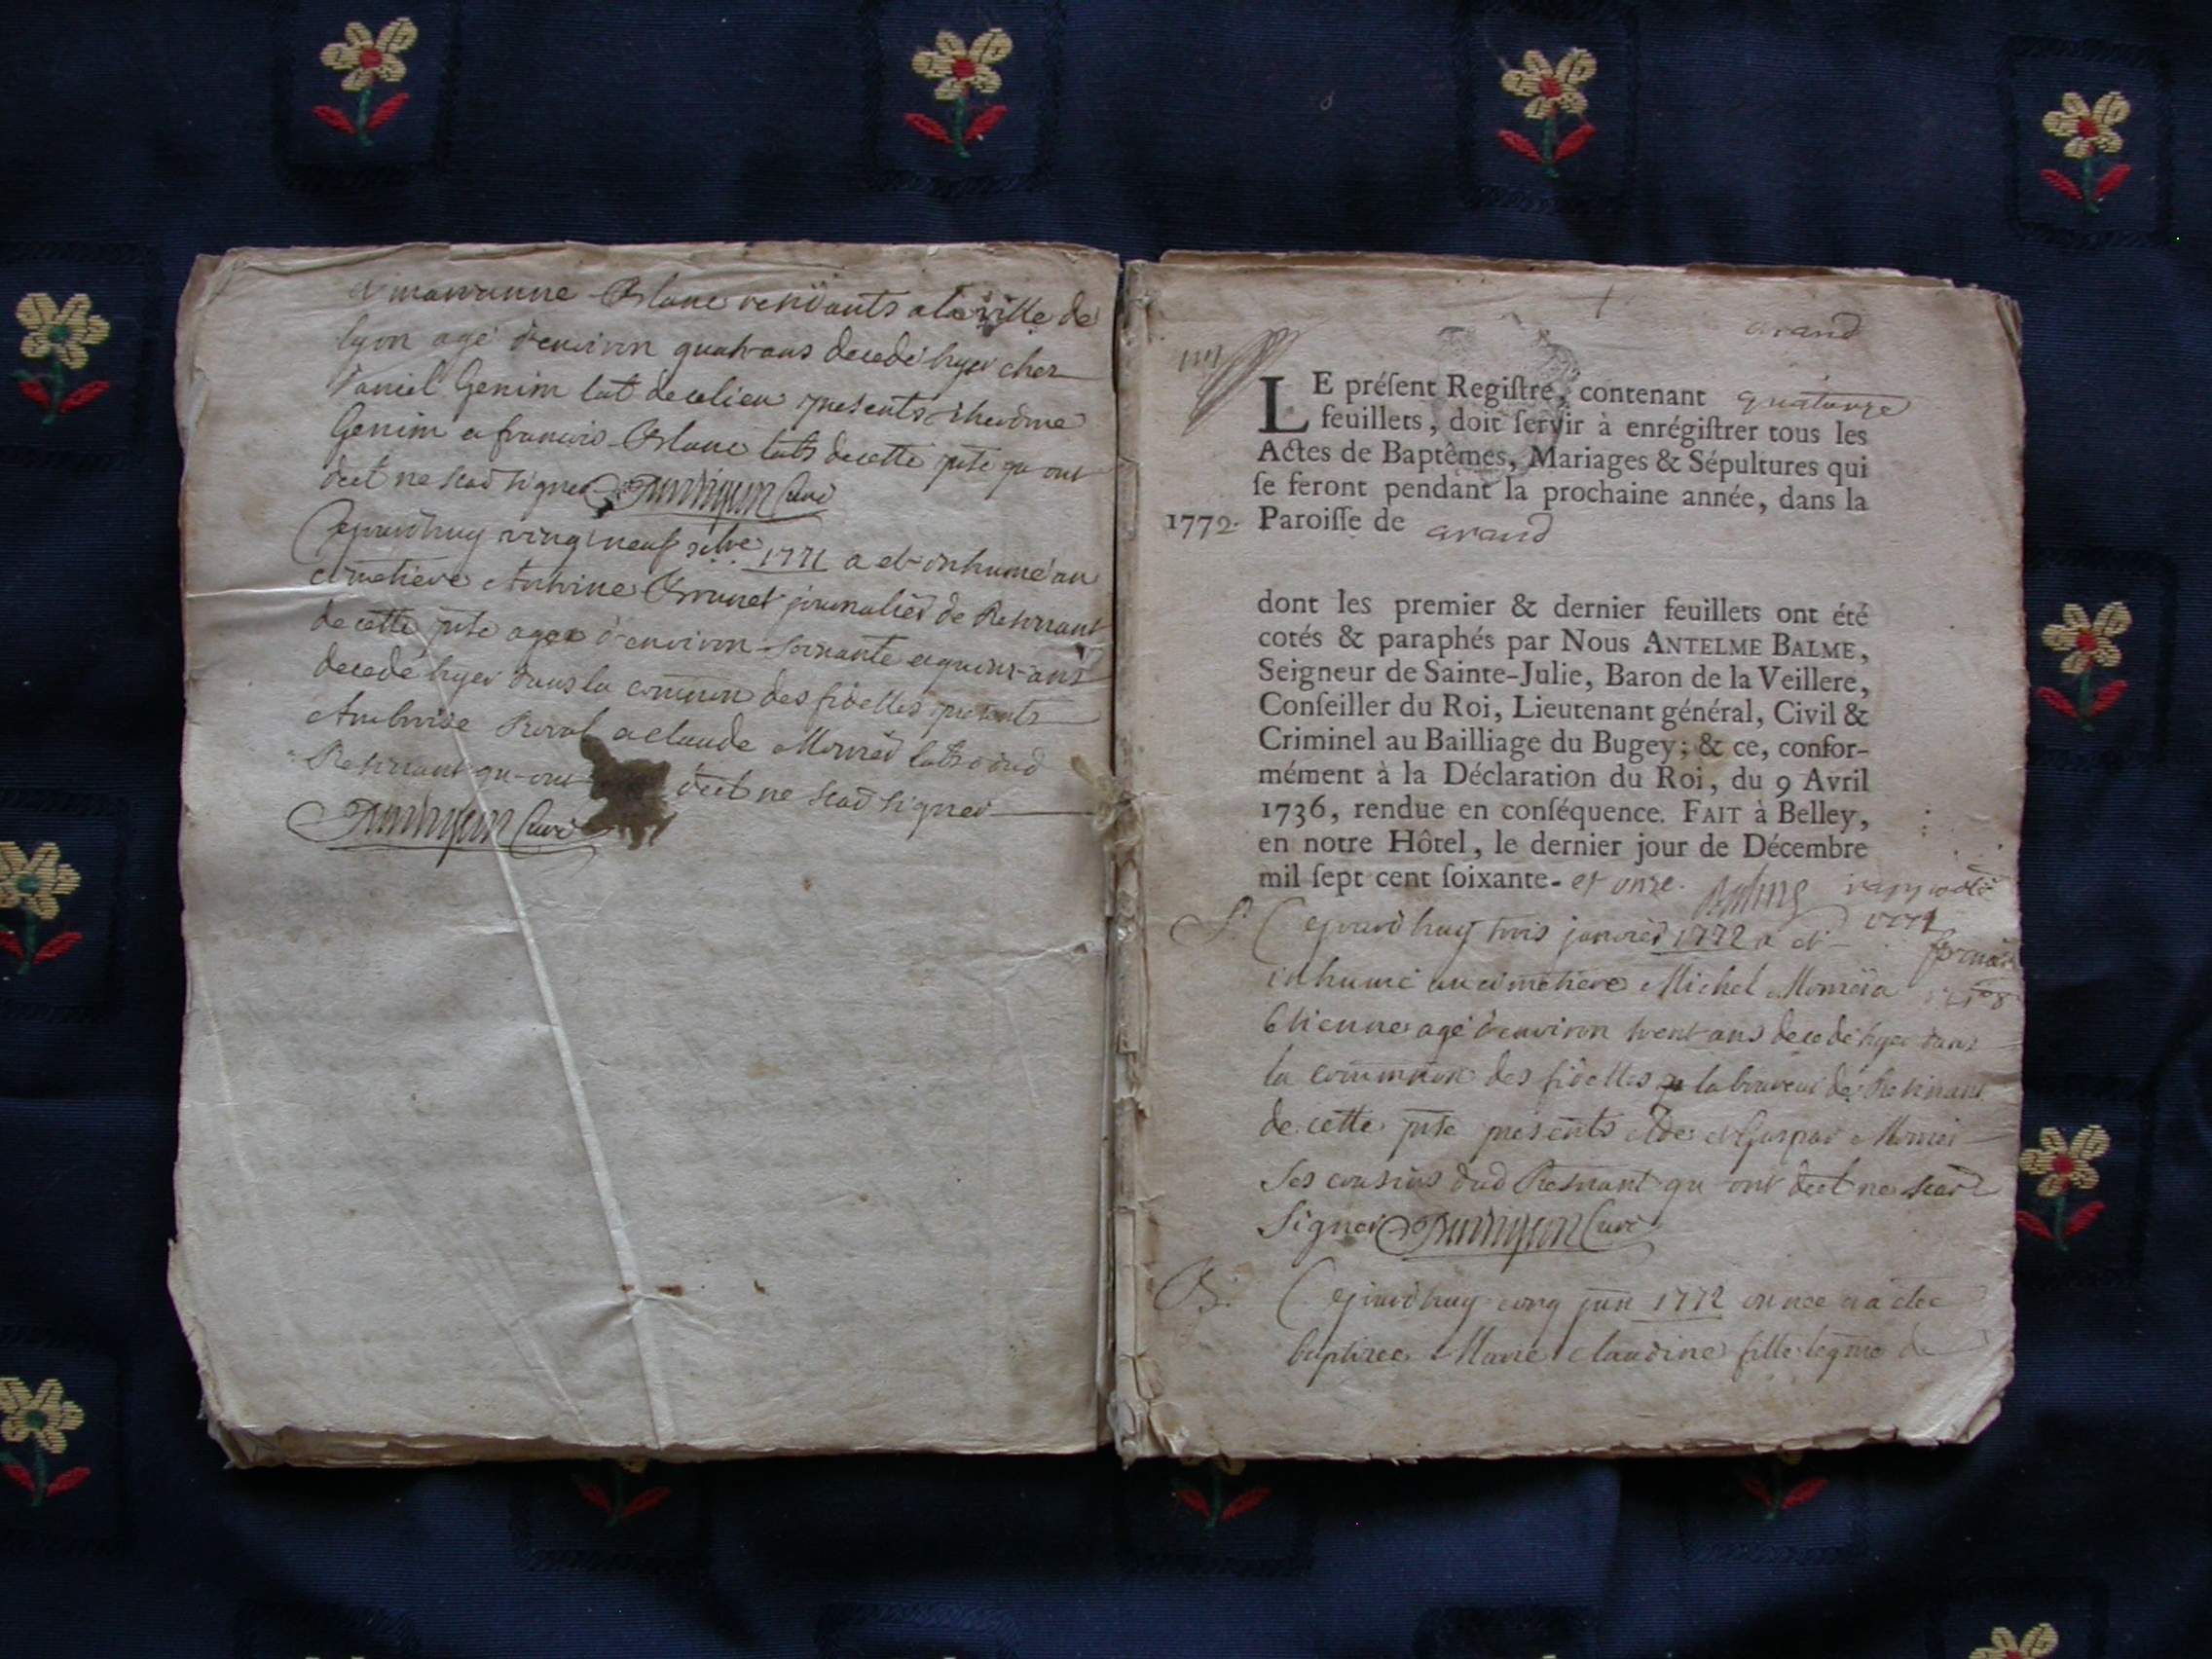 et marianne Blanc residants a la ville de
lyon agé d'environ quatr ans decedé hyer chez
Daniel Genin lab de ce lieu presents iherome
Genin et francois Blanc labs de cette psse qu ont
decl ne scav signer curé
Cejourdhuy vingt neuf xbre 1771 a ete inhumé au
cimetiere Anthoine Brunet journalier de
de cette psse agee d'environ soixante et quinz ans
decedé hyer dans la comuion des fidelles presents
Ambroise a claude Monier labs dud
qu ont decl ne scav signer
curé
arand
LE préſent Regiſtre, contenant quatorze
feuillets, doit ſervir à enrégiſtrer tous les
Actes de Baptêmes, Mariages & Sépultures qui
ſe feront pendant la prochaine année, dans la
1772. Paroiſſe de arand
dont les premier & dernier feuillets ont été
cotés & paraphés par Nous ANTELME BALME,
Seigneur de Sainte-Julie, Baron de la Veillere,
Conſeiller du Roi, Lieutenant général, Civil &
Criminel au Bailliage du Bugey; & ce, confor-
mément à la Déclaration du Roi, du 9 Avril
1736, rendue en conſéquence. FAIT à Belley,
en notre Hôtel, le dernier jour de Décembre
mil ſept cent ſoixante- et onze. Balme
S. Cejourdhuy trois janvier 1772 a ete
inhumé au cimetiere Michel
Etienne agé d'environ trent ans decedé hyer dans
la communion des fidelles laboureur de
de cette psse presents et Gaspar Monier
ses cousins dud qu ont decl ne scav
signer curé
B. Cejourdhuy cinq juin 1772 en nee et a etee
baptisee Marie claudine fille legme de